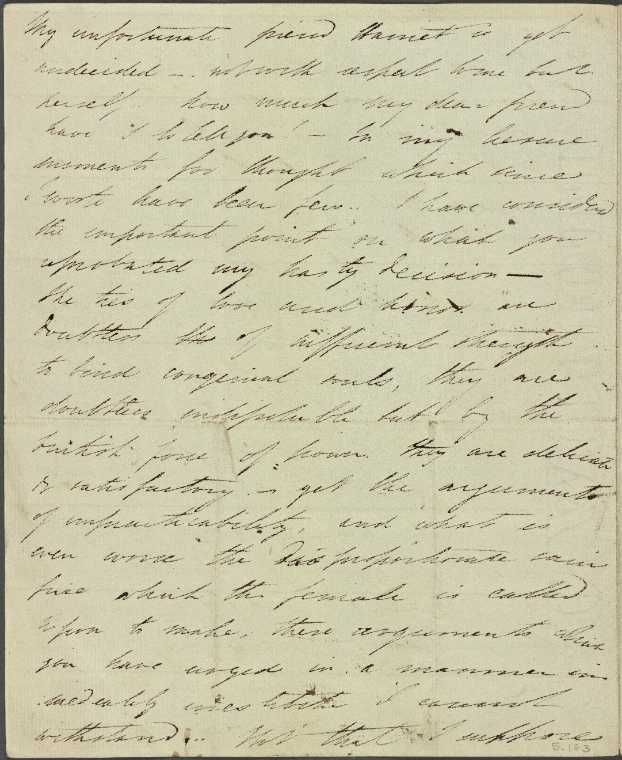 My unfortunate friend Harriet is yet
undecided –. not with respect to me but
herself. How much my dear friend
have I to tell you! – In my leisure
moments for thought which since
I wrote have been few.. I have considered
the important point on which you
reprobated my hasty decision —
The ties of love and honor are
doubtless of sufficient strength
to bind congenial souls, they are
doubtless indissoluble but by the
brutish force of power. they are delicate
& satisfactory. – yet the arguments
of impracticability, and what is
even worse the disproportionate sacri
fice which the female is called
upon to make, these arguments which
you have urged in a manner im
mediately irresistible I cannot
withstand... Not that I suppose
5.183